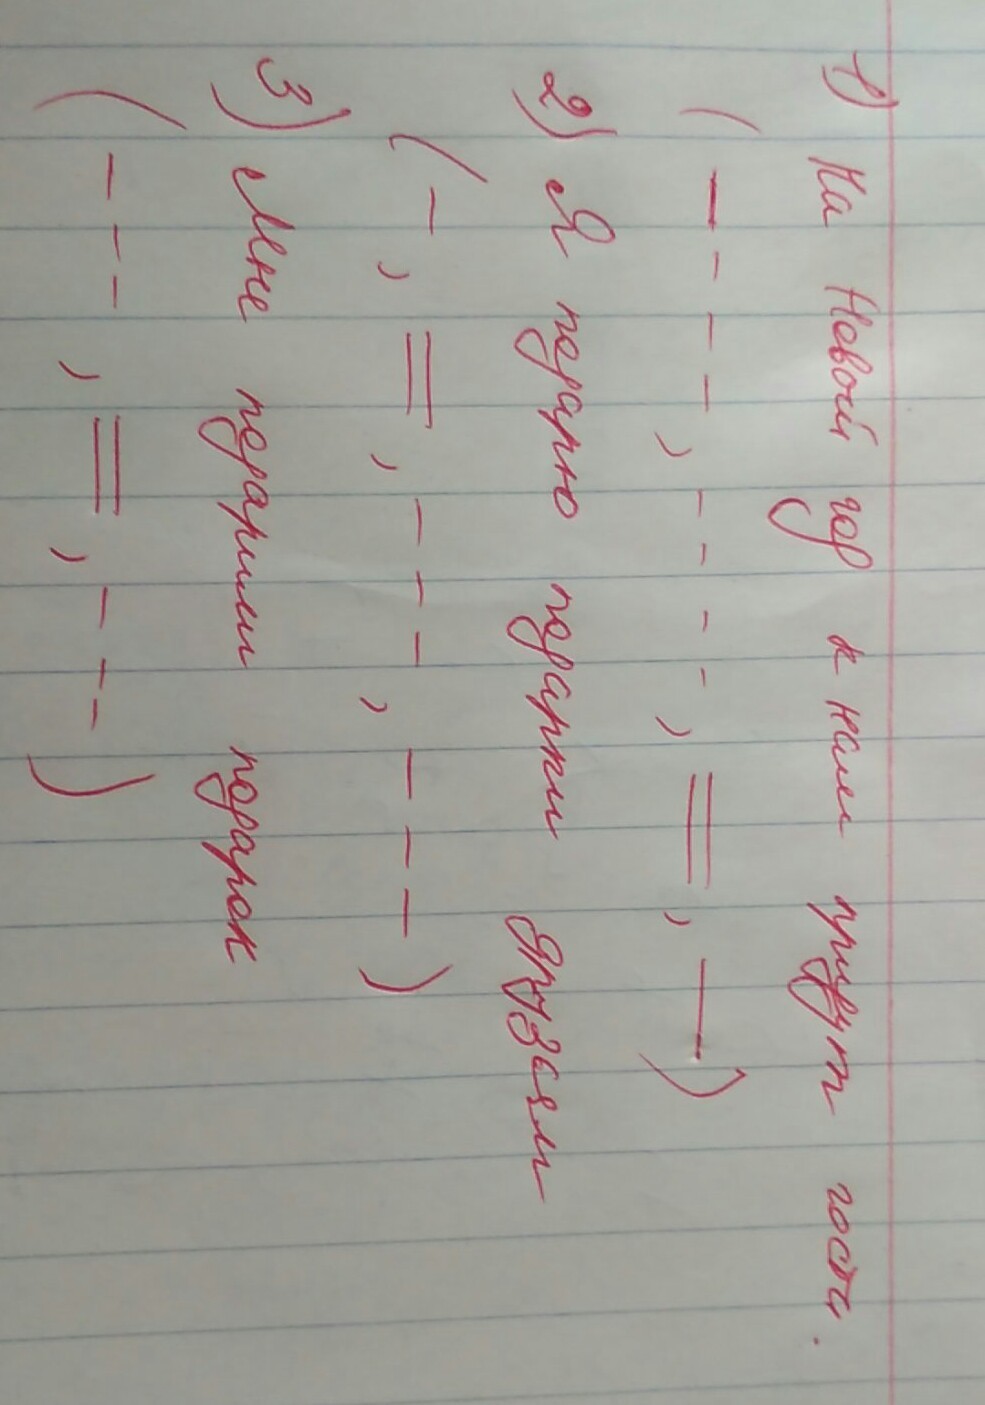 1) На Новый год к нам придут гости.
(– – – –, – – – –, =, —)
2) Я подарю подарки друзьям
(–, =, – – –, – – –)
3) Мне подарили подарок
(– – –, =, – – –)